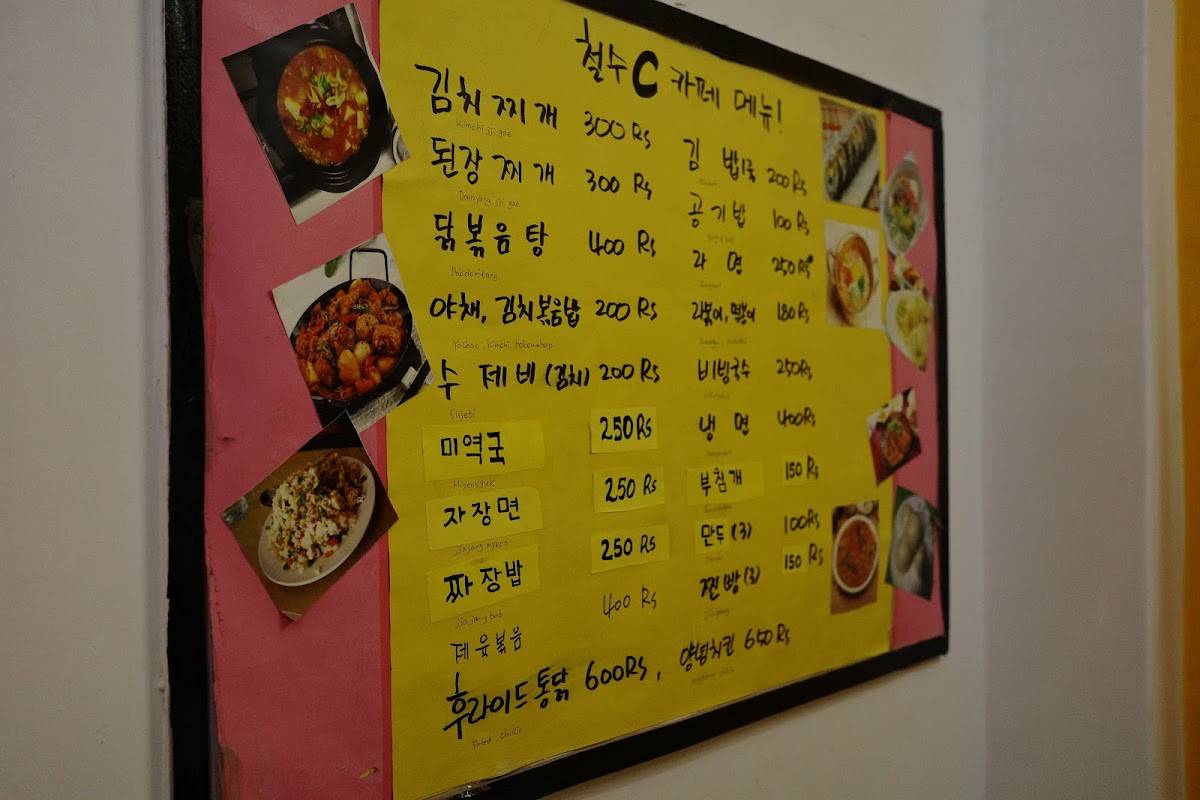 철수 C 카페 메뉴!
김치찌개 300 Rs
Kimchi jji gae
된장찌개 300 Rs
Doenjang jji gae
닭볶음탕 400 Rs
Dakdoritang
야채, 김치볶음밥 200 Rs
Yachae, Kimchi bokeumbap
수제비(김치) 200 Rs
Sujebi
미역국 250 Rs
Miyeokguk
자장면 250 Rs
짜장밥 250 Rs
jjajang bab
제육볶음 400 Rs
김밥 200 Rs
공기밥 100 Rs
라면 250 Rs
라볶이, 떡볶이 180 Rs
비빔국수 250 Rs
냉면 400 Rs
부침개 150 Rs
만두(3) 100 Rs
찐빵(3) 150 Rs
후라이드통닭 600 Rs, 양념치킨 650 Rs
Fried chikin